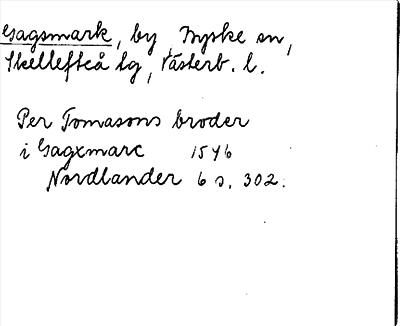 Gagsmark, by, Byske sn,
Skellefteå tg, Västerb. l.
Per Tomasons broder
i Gagxmarc 1546
Nordlander 6 s. 302.